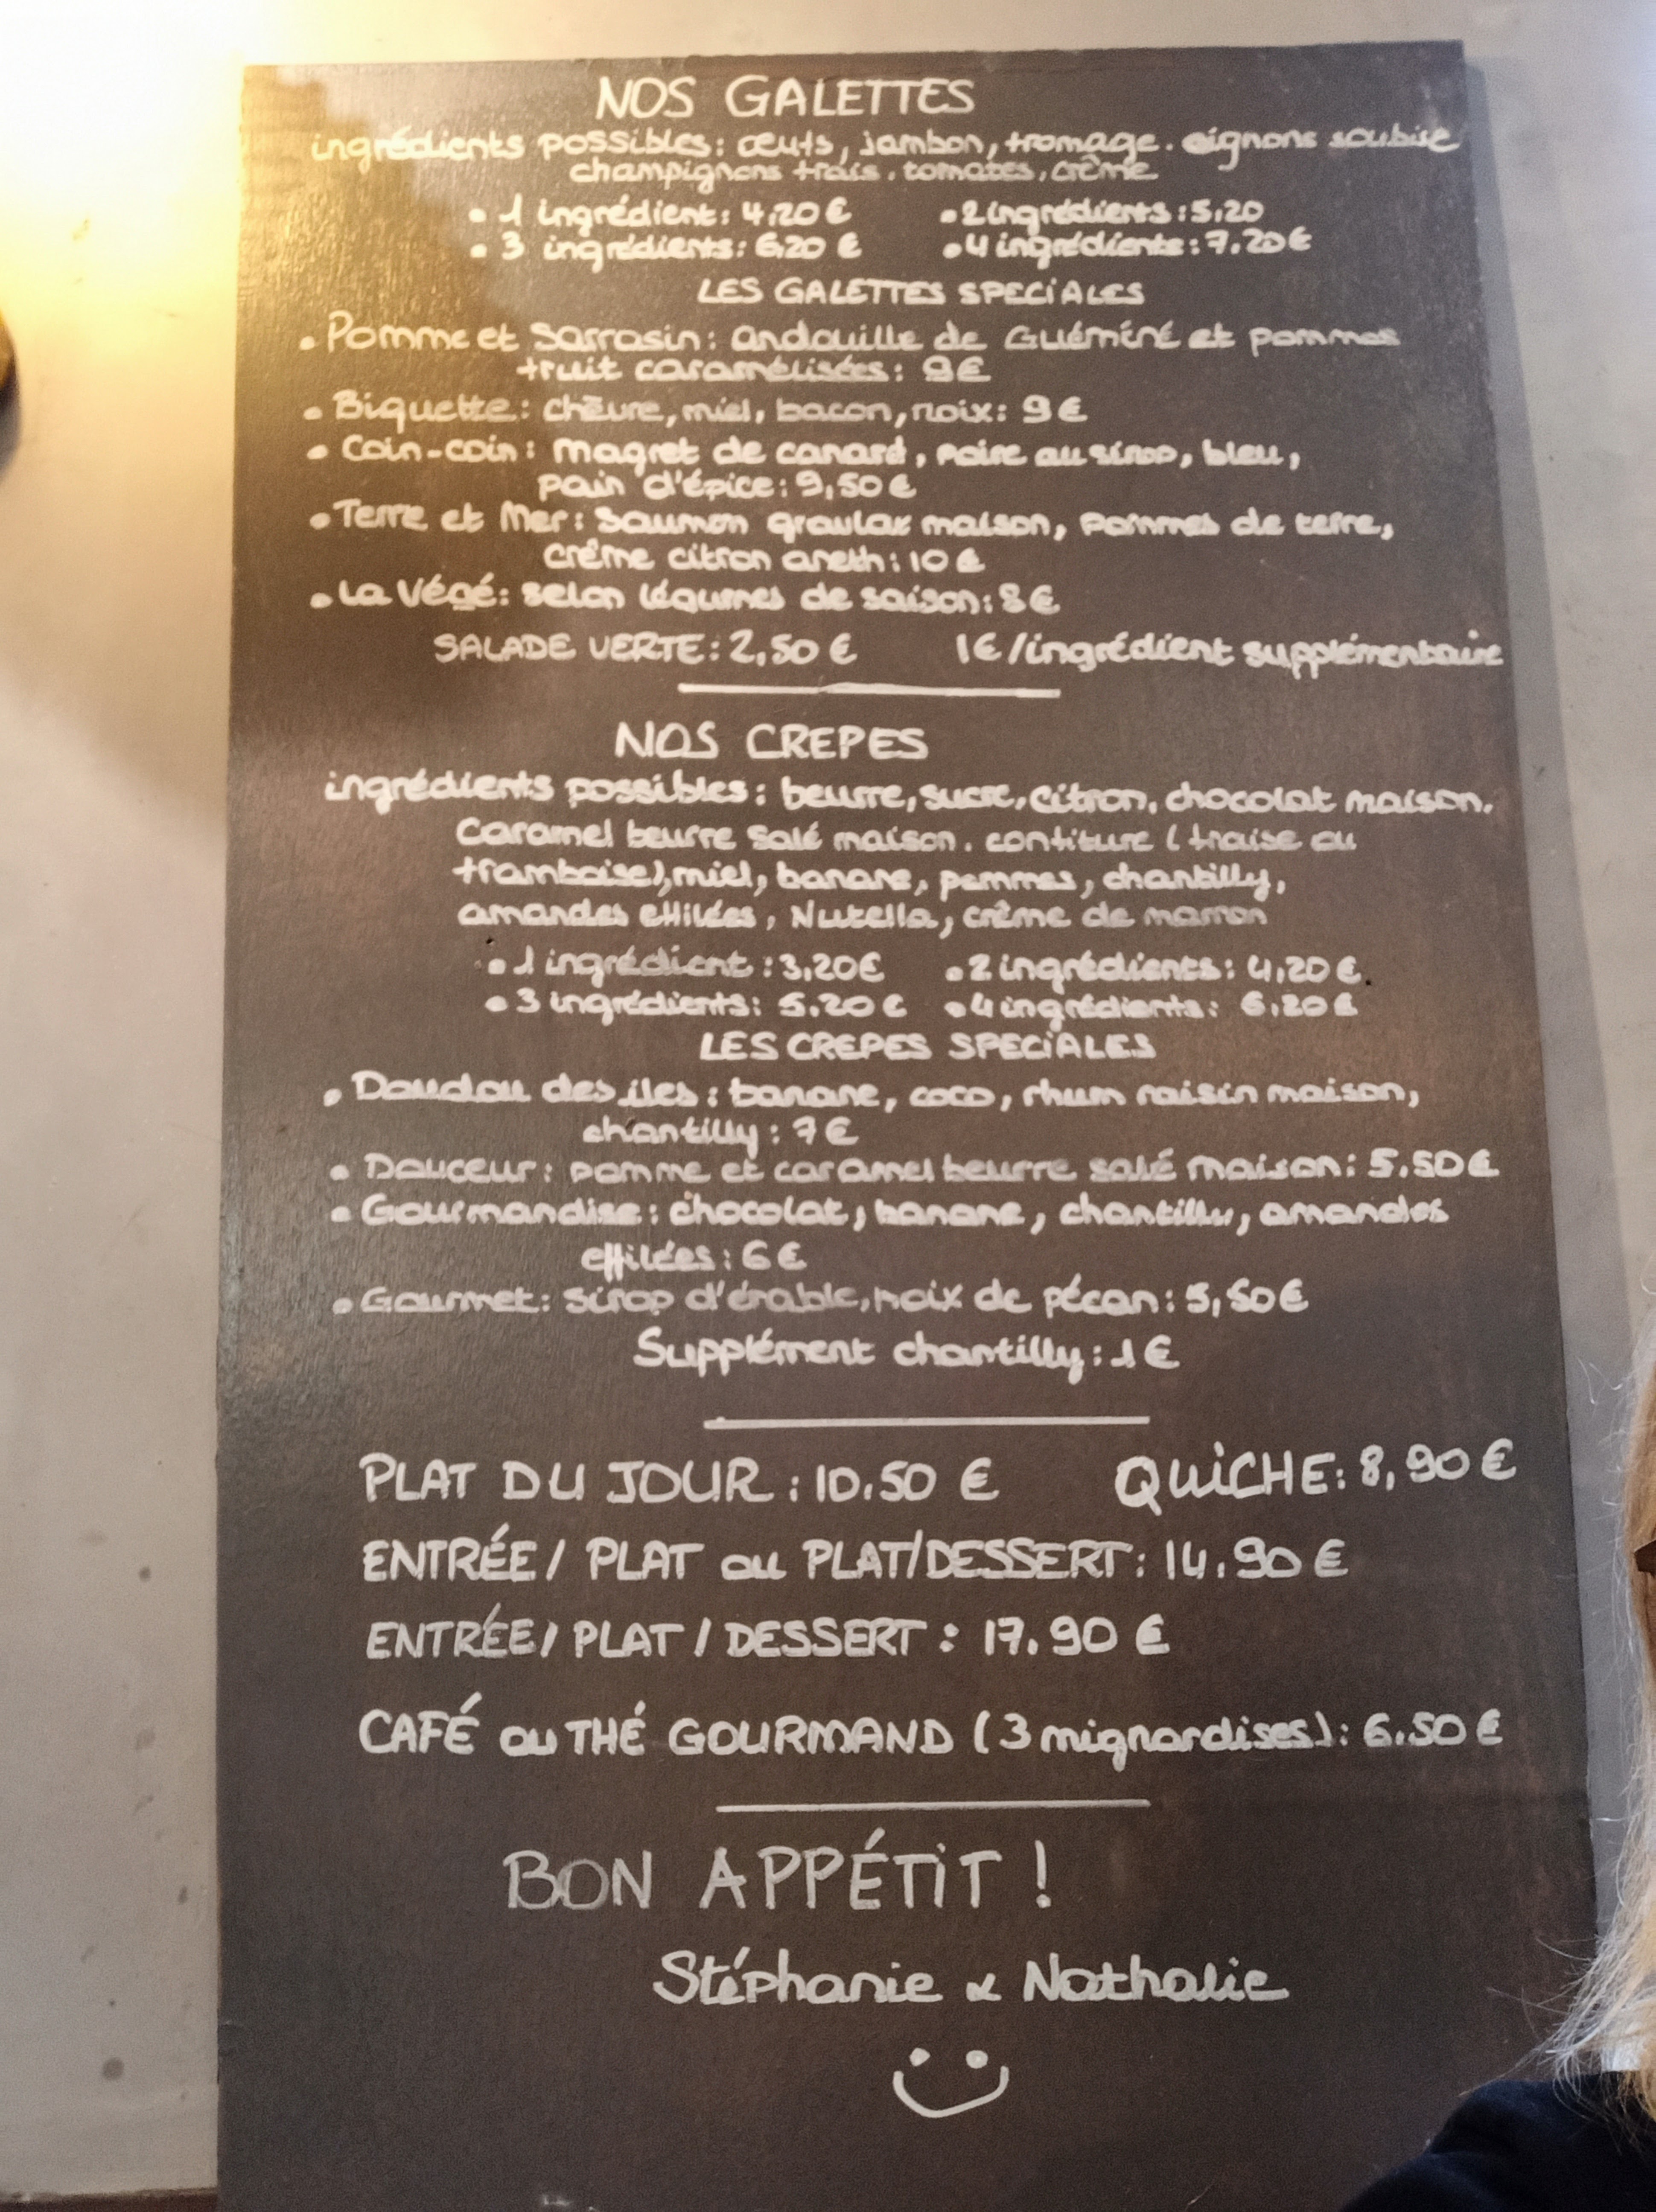 NOS GALETTES
ingrédients possibles: œufs, jambon, fromage. oignons soubise
champignons frais, tomates, crème
• 1 ingrédient: 4,20 € • 2 ingrédients: 5,20
• 3 ingrédients: 6,20 € • 4 ingrédients: 7.20€
LES GALETTES SPECIALES
• Pomme et Sarrasin: andouille de Guéméné et pommes
fruit caramélisées: 9€
• Biquette: chèvre, miel, bacon, noix: 9€
• Coin-coin: magret de canard, poire au sirop, bleu,
pain d'épice: 9,50€
• Terre et Mer: Saumon gravlax maison, pommes de terre,
crème citron aneth: 10 €
• La Végé: selon légumes de saison: 8€
SALADE VERTE: 2,50 € 1€/ingrédient supplémentaire
NOS CREPES
ingrédients possibles: beurre, sucre, citron, chocolat maison.
Caramel beurre salé maison. confiture (fraise ou
framboise), miel, banane, pommes, chantilly,
amandes effilées, Nutella, crème de marron
• 1 ingrédient: 3,20€ • 2 ingrédients: 4,20€
• 3 ingrédients: 5.20€ • 4 ingrédients: 6.20€
LES CREPES SPECIALES
• Doudou des iles: banane, coco, rhum raisin maison,
chantilly: 7€
• Douceur: pomme et caramel beurre salé maison: 5.50€
• Gourmandise: chocolat, banane, chantilly, amandes
effilées: 6€
• Gourmet: sirop d'érable, noix de pécan: 5,50€
Supplément chantilly: 1€
PLAT DU JOUR: 10.50 € QUICHE: 8,90€
ENTRÉE/ PLAT ou PLAT/DESSERT: 14.90€
ENTRÉE/ PLAT / DESSERT: 17.90 €
CAFÉ ou THÉ GOURMAND (3 mignardises): 6.50€
BON APPÉTIT !
Stéphanie & Nathalie